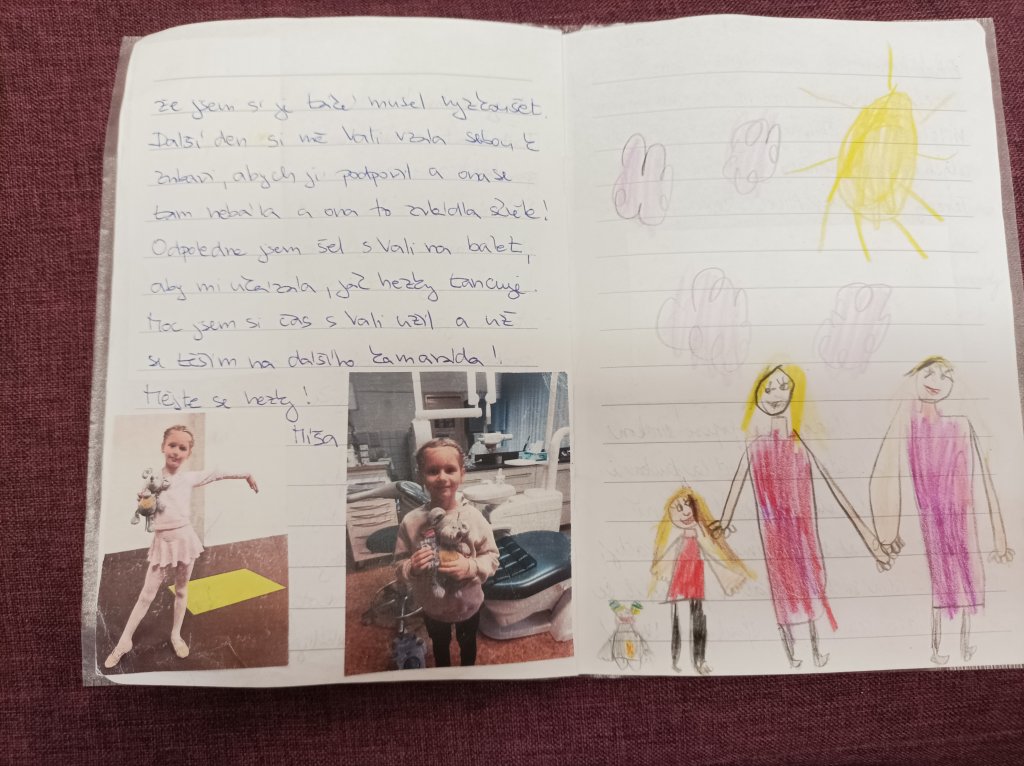 že jsem si je také musel vyzkoušet.
Další den si mě Vali vzala sebou k
zubaři, abych ji podpořil a ona se
tam nebála a ona to zvládla skvěle!
Odpoledne jsem šel s Vali na balet,
aby mi ukázala, jak hezky tancuje.
Moc jsem si čas s Vali užil a už
se těším na dalšího kamaráda!
Mějte se hezky!
Míša